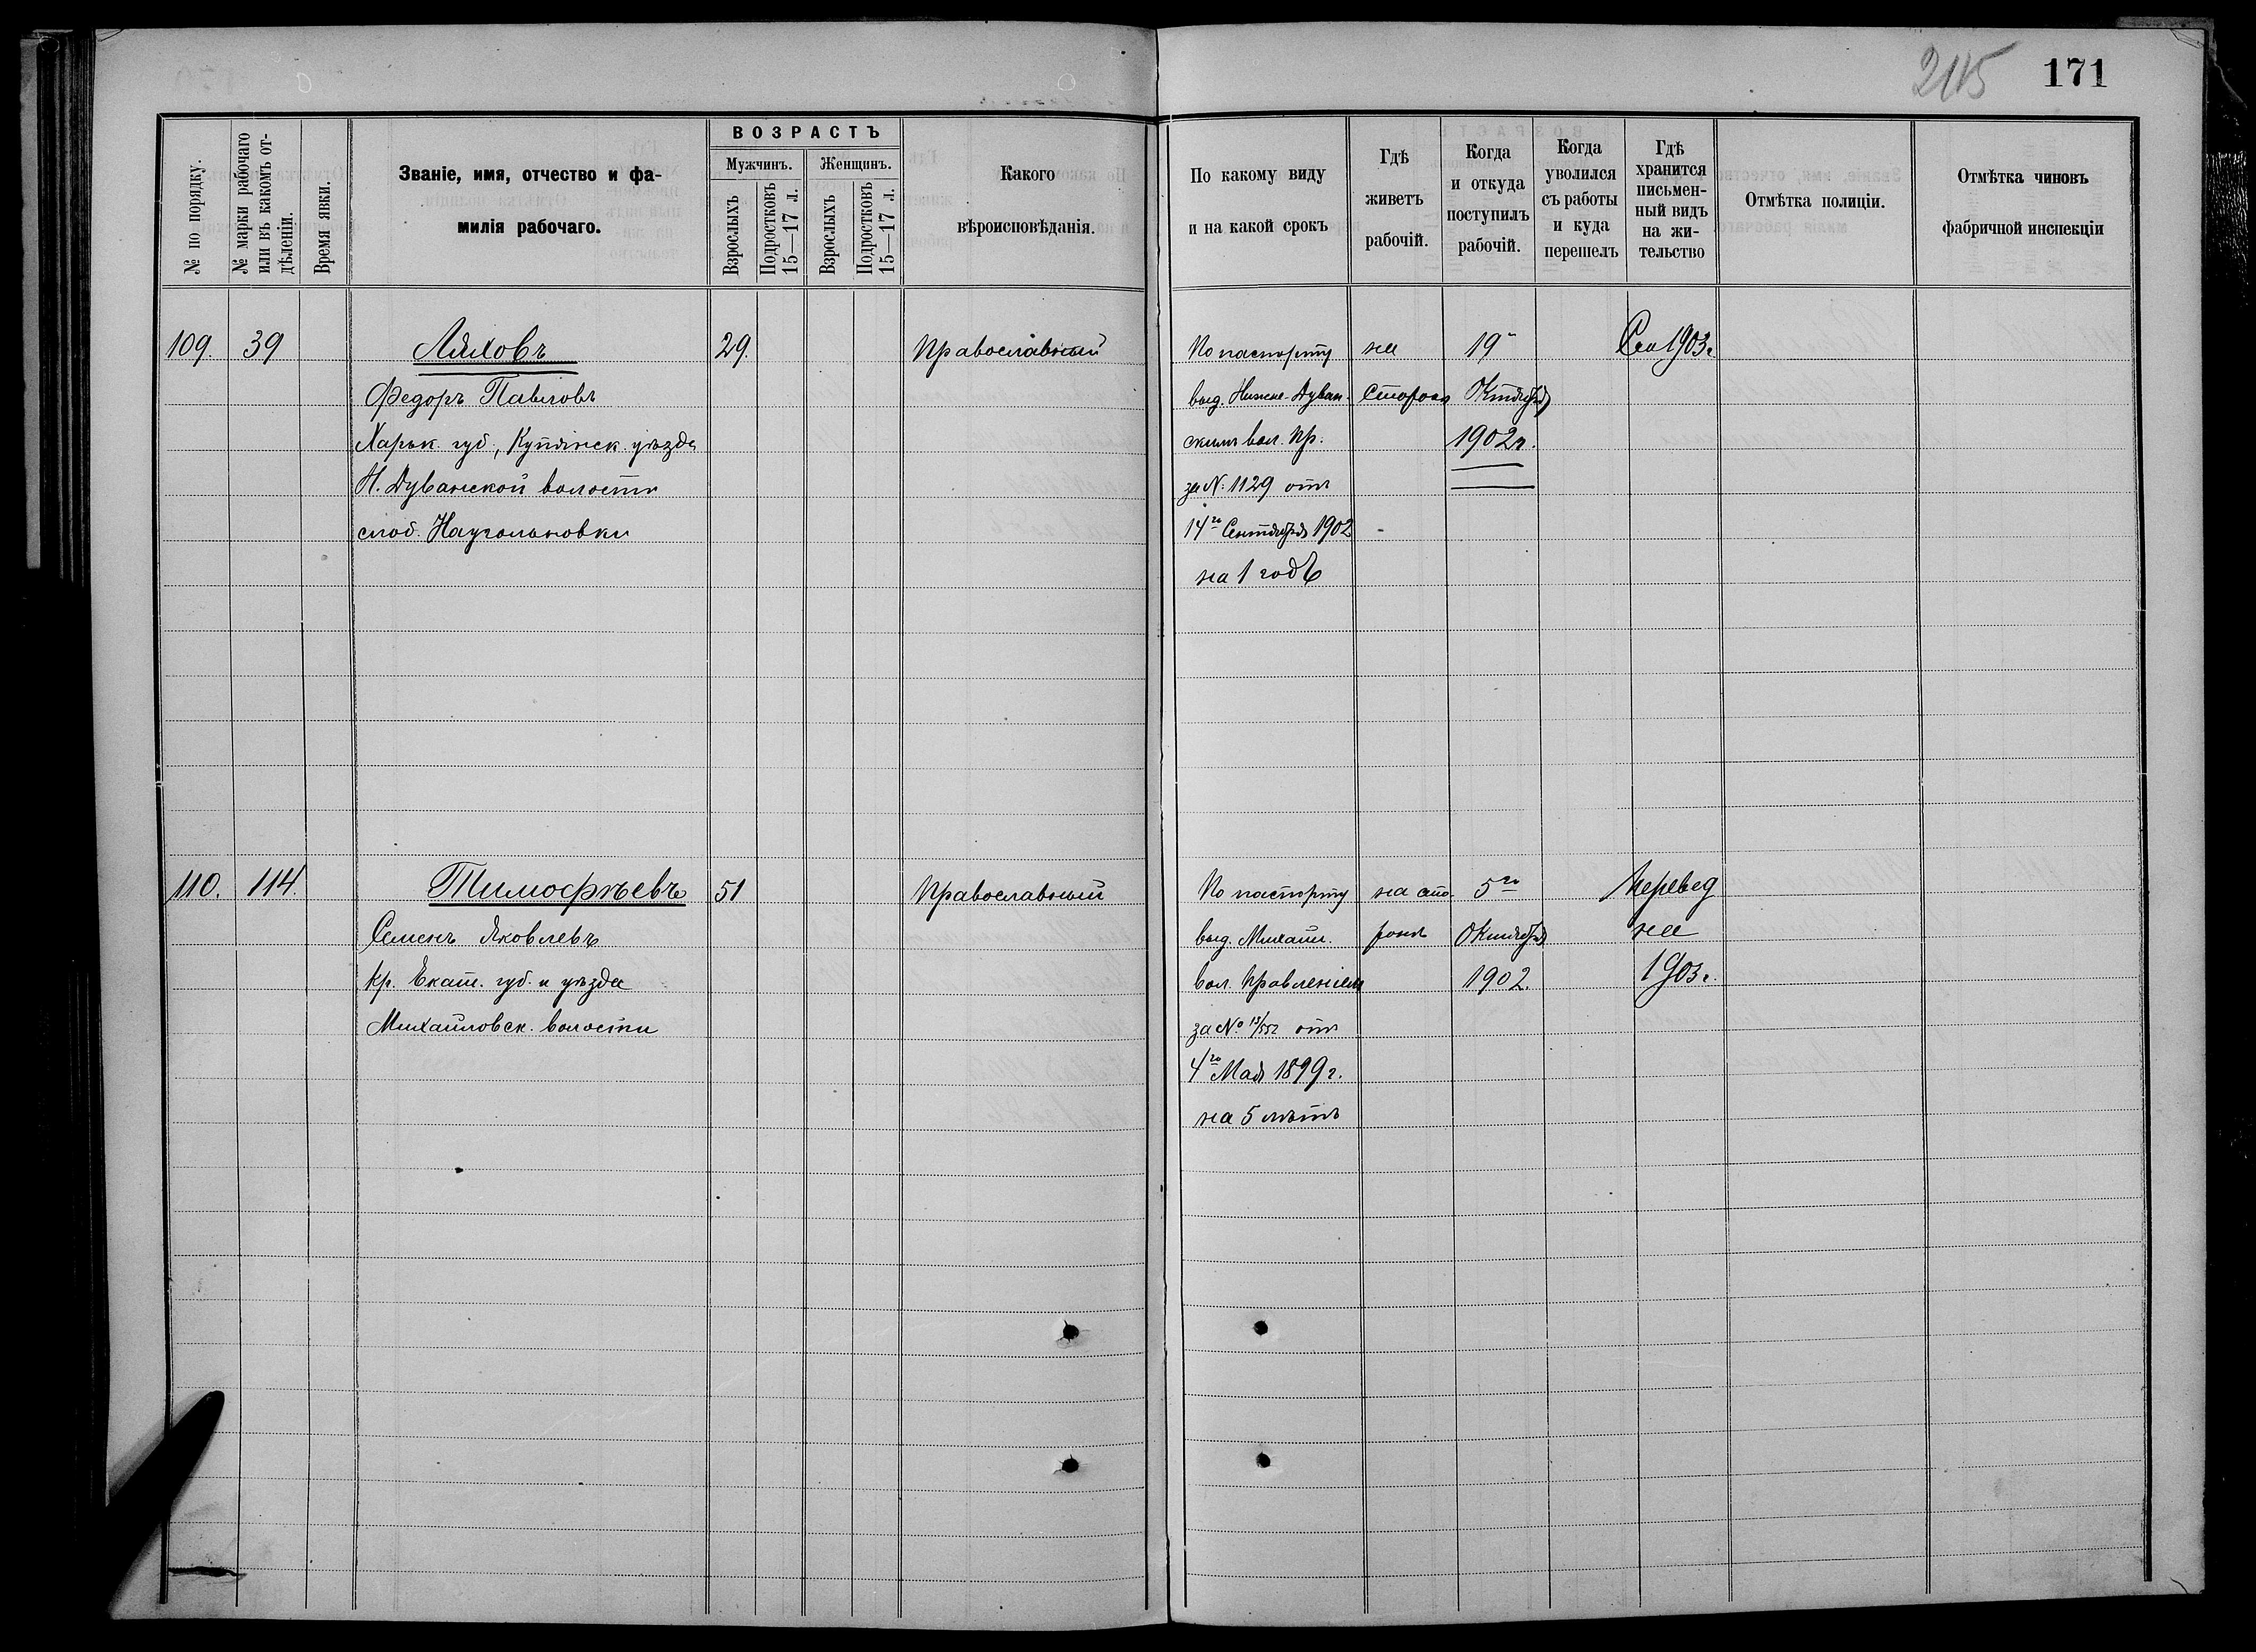 215 171
№ по порядку.
№ марки рабочаго
или въ какомъ от-
дѣленіи.
Время явки.
Званіе, имя, отчество и фа-
милія рабочаго.
ВОЗРАСТЪ
Мужчинъ. Женщинъ.
Взрослыхъ
Подростковъ
15—17 л.
Взрослыхъ
Подростковъ
15—17 л.
Какого
вѣроисповѣданія.
По какому виду
и на какой срокъ
Гдѣ
живетъ
рабочій.
Когда
и откуда
поступилъ
рабочій.
Когда
уволился
съ работы
и куда
перешелъ
Гдѣ
хранится
письмен-
ный видъ
на жи-
тельство
Отмѣтка полиціи.
Отмѣтка чиновъ
фабричной инспекціи
109. 39 Ляховъ 29. Православный По паспорту на 19 1903г
Федоръ Павловъ выд. Нижне-Дуван- Сторонѣ Октября
Харьк. губ., Купянск. уѣзда скимъ вол. пр. 1902г.
Н. Дуванской волости за N: 1129 отъ
слоб. Наугольновки 14го Сентября 1902
на 1 годъ
110. 114. Тимофѣевъ 51 Православный По паспорту на сто- 5го перевед
Семенъ Яковлевъ выд. Михайл. ронѣ Октября на
кр. Екат. губ. и уѣзда вол. правленіем 1902. 1903г.
Михайловск. волости за № 13/552 отъ
4го Мая 1899г.
на 5 лѣтъ